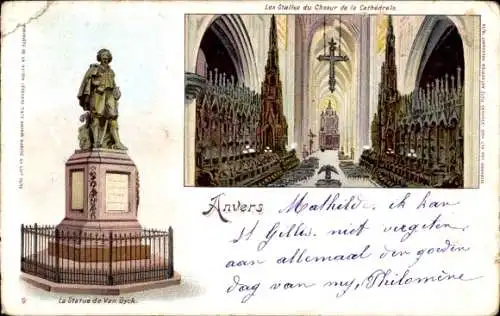 Les Stalles du Chœur de la Cathédrale
Anvers
Mathilde. ik kan
St Gilles. niet vergeten
aan allemaal den goeden
dag van my. Philomène
9
La Statue de Van Dyck.